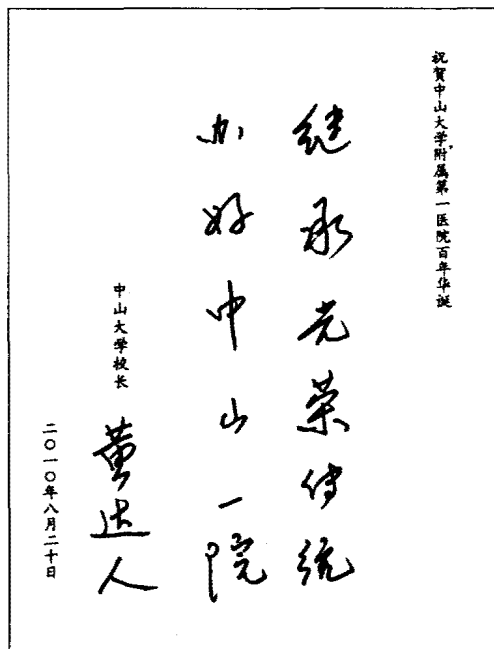 祝贺中山大学附属第一医院百年华诞
继承光荣传统
办好中山一院
中山大学校长
黄达人
二〇一〇年八月二十日